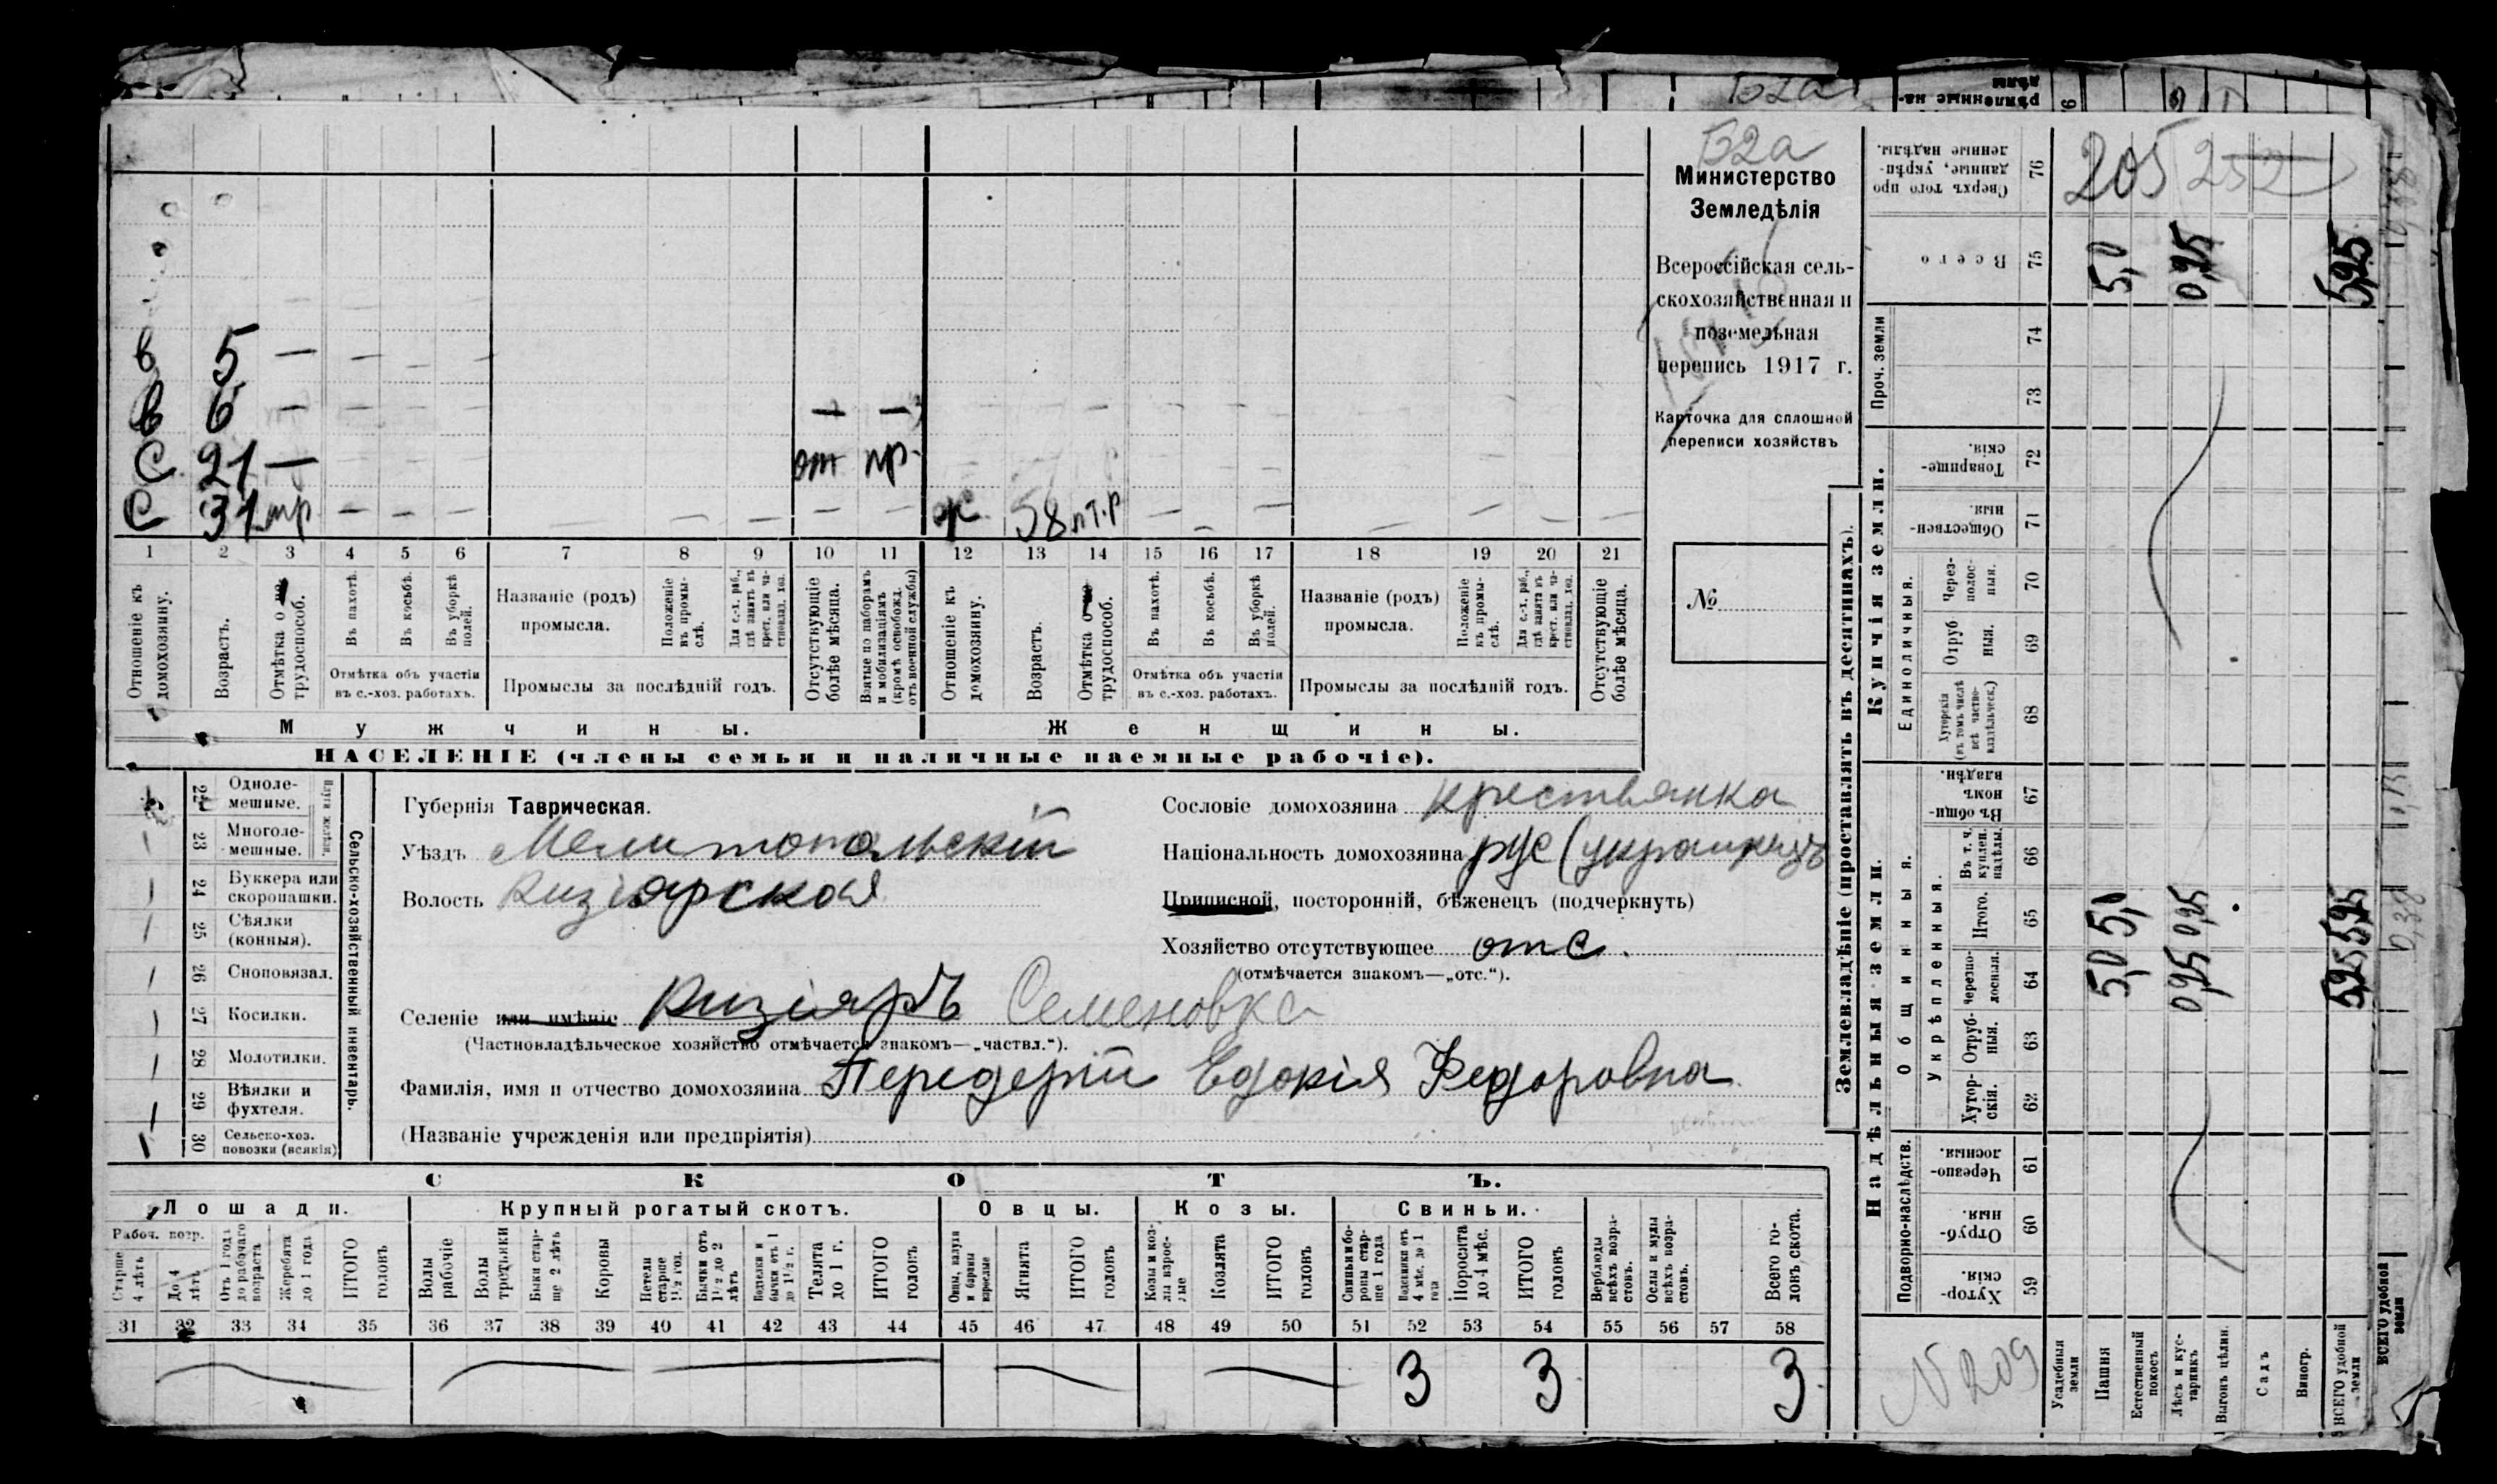 Б2а
Министерство
Земледѣлія
Всероссійская сель-
скохозяйственная и
поземельная
перепись 1917 г.
Карточка для сплошной
переписи хозяйствъ
№
в 5 —
в 6 — — —
С 21 — от пр.
С 31 тр — — — — — — — — ж 58 — — — — — — —
1 2 3 4 5 6 7 8 9 10 11 12 13 14 15 16 17 18 19 20 21
Отношеніе къ домохозяину.
Возрастъ.
Отмѣтка о трудоспособ.
Въ пахотѣ.
Въ косьбѣ.
Въ уборкѣ полей.
Отмѣтка объ участіи въ с.-хоз. работахъ.
Названіе (родъ) промысла.
Положеніе въ промы-слѣ.
Для с.-х. раб., гдѣ занятъ въ крест. или ча-стновлад. хоз.
Промыслы за послѣдній годъ.
Отсутствующіе болѣе мѣсяца.
Взятые по наборамъ и мобилизаціямъ (кромѣ освобожд. отъ военной службы)
Отношеніе къ домохозяину.
Возрастъ.
Отмѣтка о трудоспособ.
Въ пахотѣ.
Въ косьбѣ.
Въ уборкѣ полей.
Отмѣтка объ участіи въ с.-хоз. работахъ.
Названіе (родъ) промысла.
Положеніе къ промы-слѣ.
Для с.-х. раб., гдѣ занята въ крест. или ча-стновлад. хоз.
Промыслы за послѣдній годъ.
Отсутствующіе болѣе мѣсяца.
Мужчины. Женщины.
НАСЕЛЕНІЕ (члены семьи и наличные наемные рабочіе).
Сельско-хозяйственный инвентарь.
Плуги желѣзн.
22 Одноле-мешные.
23 Многоле-мешные.
24 Буккера или скоропашки.
25 Сѣялки (конныя).
26 Сноповязал.
27 Косилки.
28 Молотилки.
29 Вѣялки и фухтеля.
30 Сельско-хоз. повозки (всякія)
Губернія Таврическая.
Уѣздъ Мелитопольскій
Волость Кизіярской
Селеніе или имѣніе Кизіяръ Семеновка
(Частновладѣльческое хозяйство отмѣчается знакомъ—„частвл.“).
Фамилія, имя и отчество домохозяина Передерій Евдокія Федоровна
(Названіе учрежденія или предпріятія)
Сословіе домохозяина крестьянка
Національность домохозяина рус (украинецъ
Приписной, посторонній, бѣженецъ (подчеркнуть)
Хозяйство отсутствующее отс.
(отмѣчается знакомъ—„отс.“).
СКОТЪ.
Лошади. Крупный рогатый скотъ. Овцы. Козы. Свиньи.
Рабоч. возр.
Старше 4 лѣтъ
До 4 лѣтъ
Отъ 1 года до рабочаго возраста
Жеребята до 1 года
ИТОГО головъ
Волы рабочіе
Волы третьяки
Быки стар-ше 2 лѣтъ
Коровы
Нетели старше 1½ год.
Бычки отъ 1½ до 2 лѣтъ
Телки и бычки отъ 1 до 1½ г.
Телята до 1 г.
ИТОГО головъ
Овцы, валухи и бараны взрослые
Ягнята
ИТОГО головъ
Козы и коз-лы взрос-лые
Козлята
ИТОГО головъ
Свиньи и бо-ровы стар-ше 1 года
Подсвинки отъ 4 мѣс. до 1 года
Поросята до 4 мѣс.
ИТОГО головъ
Верблюды всѣхъ возра-стовъ.
Ослы и мулы всѣхъ возра-стовъ.
Всего го-ловъ скота.
31 32 33 34 35 36 37 38 39 40 41 42 43 44 45 46 47 48 49 50 51 52 53 54 55 56 57 58
3 3 3
Землевладѣніе (проставлять въ десятинахъ).
Надѣльныя земли. Купчія земли. Проч. земли
Подворно-наслѣдств.
Общинныя.
Укрѣпленныя.
Единоличныя.
59 Хутор-скія.
60 Отруб-ныя.
61 Черезпо-лосныя.
62 Хутор-скія.
63 Отруб-ныя.
64 Черезпо-лосныя.
65 Итого.
66 Въ т. ч. куплен. надѣлы.
67 Въ общи-номъ владѣн.
68 Хуторскія (въ томъ числѣ всѣ частно-владѣльческ.)
69 Отруб ныя.
70 Через-полос-ныя.
71 Обществен-ныя.
72 Товарище-скія.
73
74
75 Всего
76 Сверхъ того про данные, укрѣп-ленные надѣлы.
Усадебныя земли
Пашня 5,0 5,0 5,0
Естественный покосъ
Лѣсъ и кус-тарникъ 0,95 0,95 0,95
Выгонъ цѣлин.
Садъ
Виногр.
ВСЕГО удобной земли 5,95 5,95 5,95
ВСЕГО удобной земли
205 252
N 209